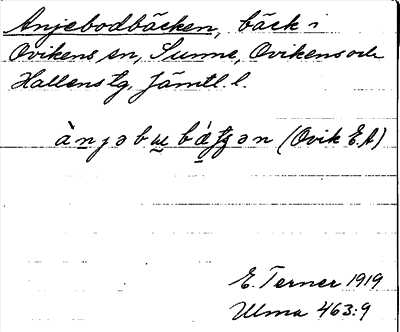 Anjebodbäcken, bäck i
Ovikens sn, Sunne, Ovikens och
Hallens tg, Jämtl. l.
(Ovik E.A)
E. Terner 1919
Ulma 463:9